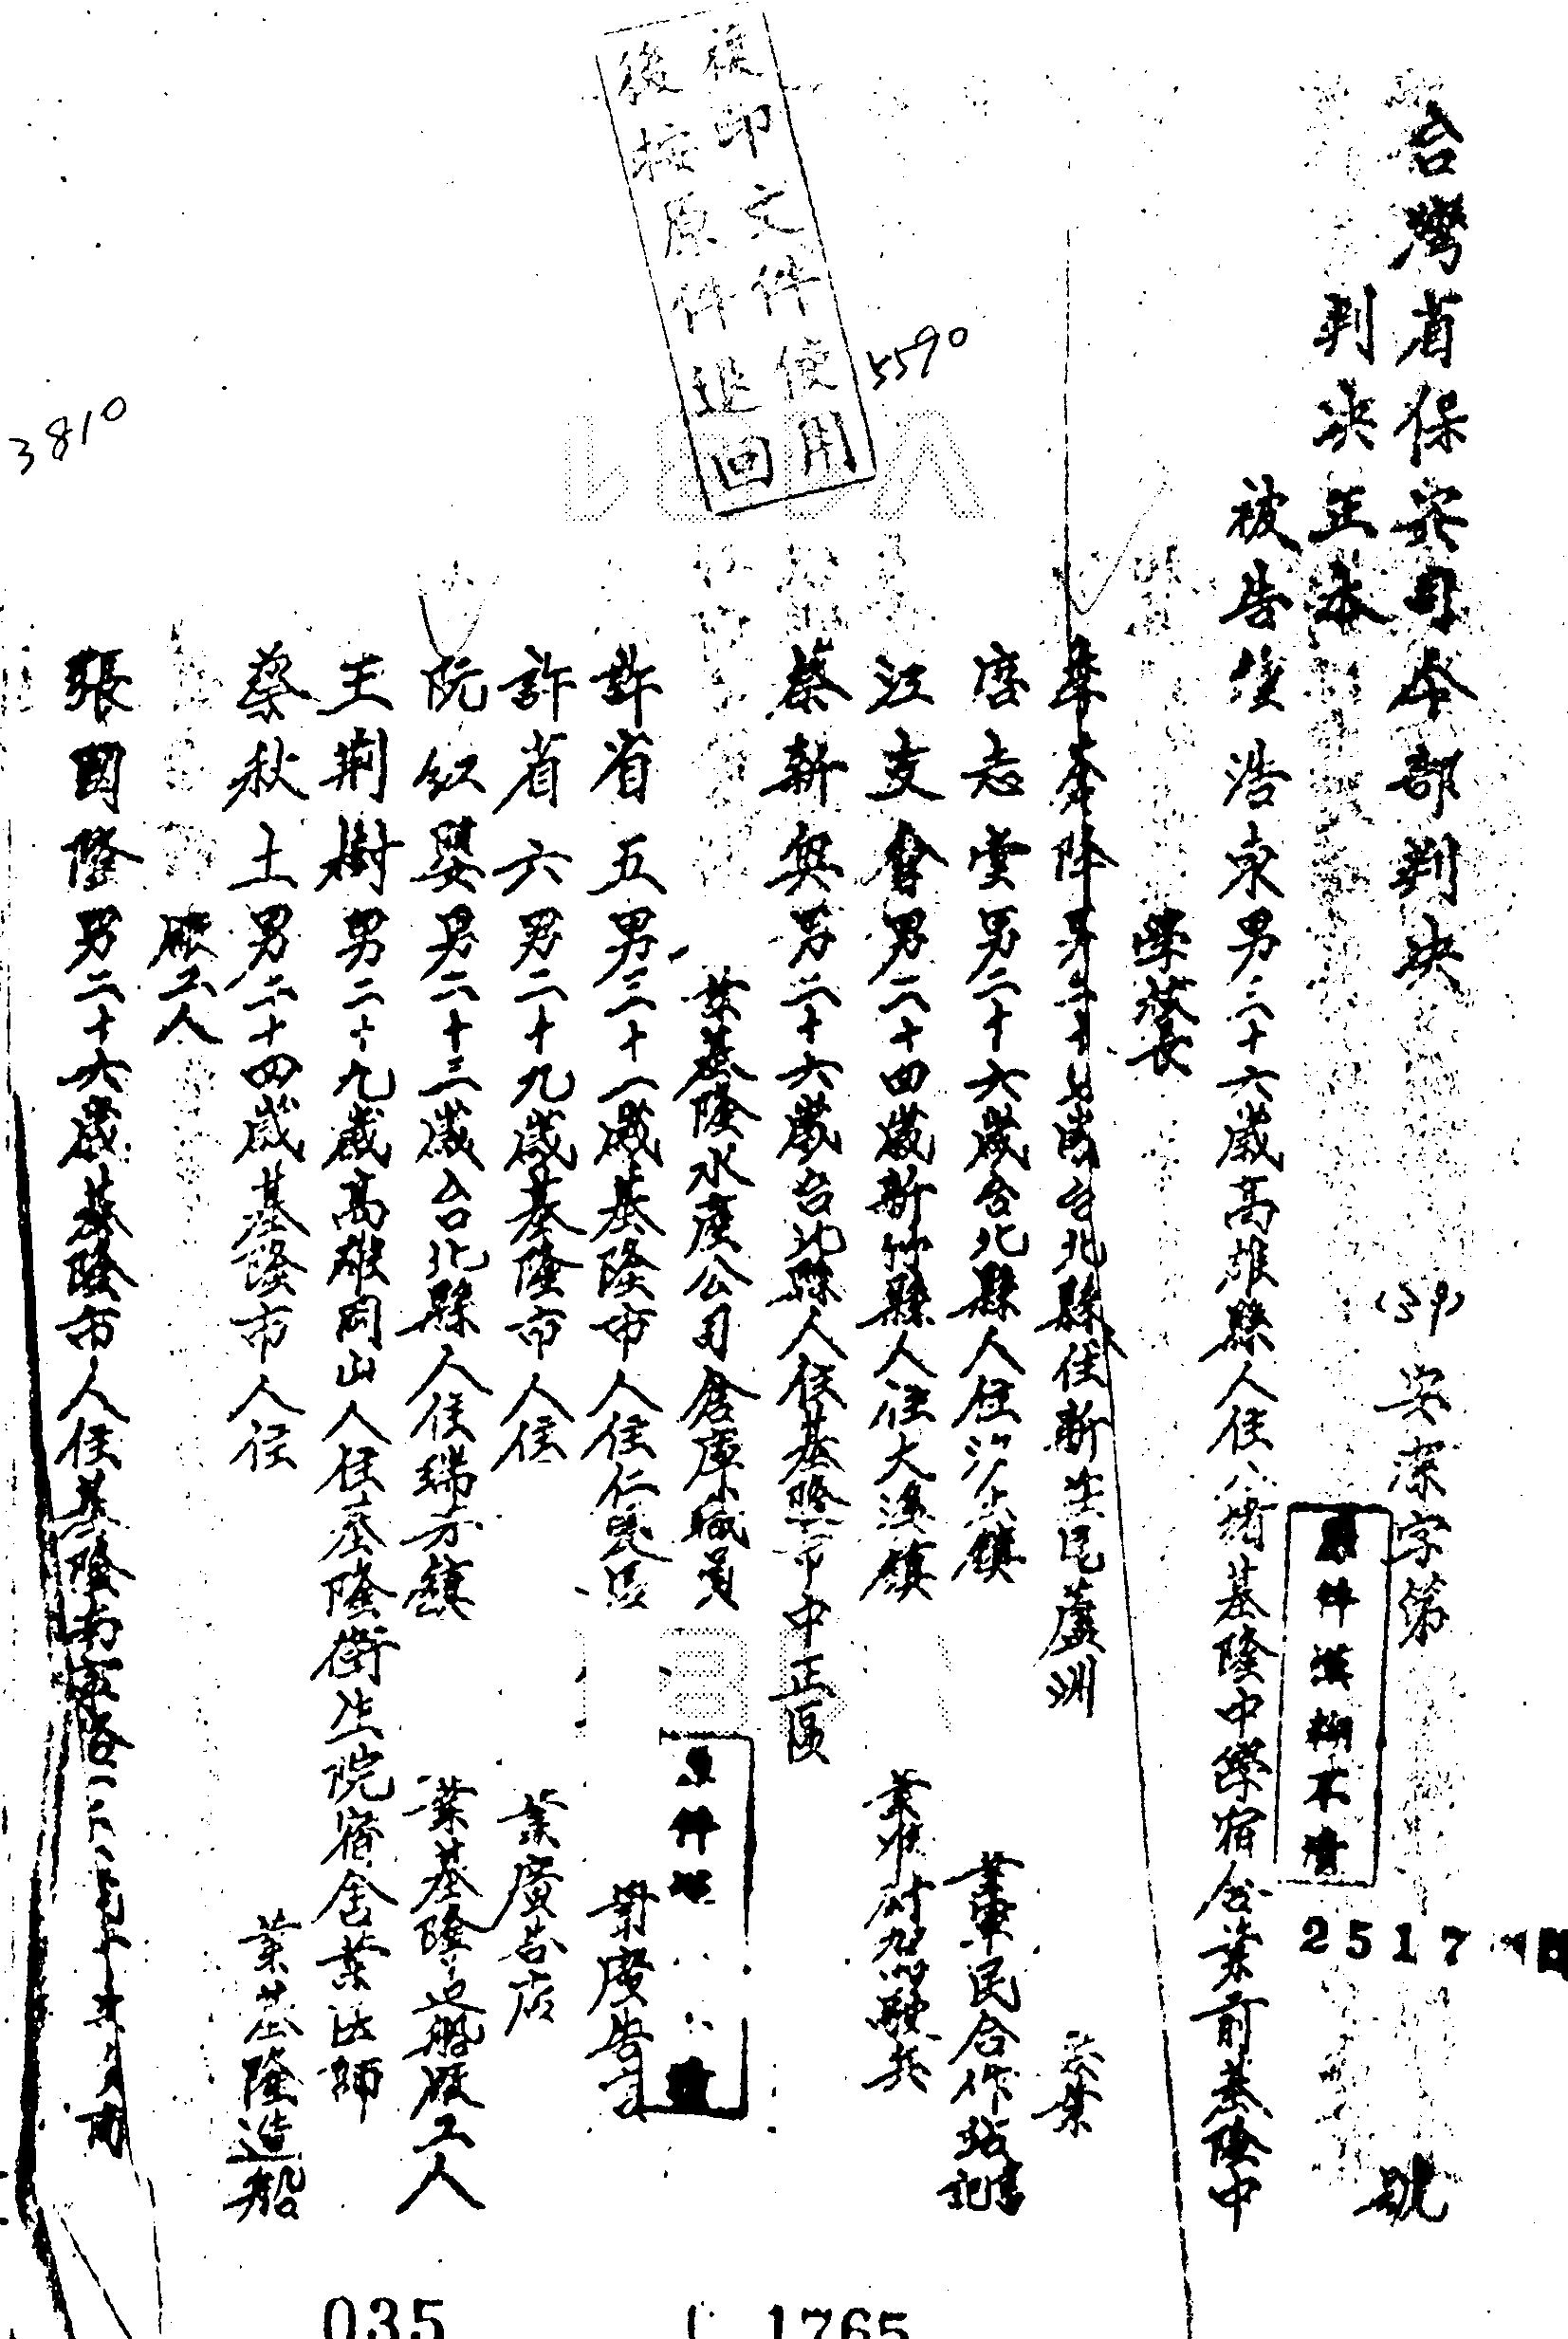 台灣省保安司令部判決 (39)安潔字第 2517 號
判決正本
被告 鍾浩東 男 三十六歲 高雄縣人 住 基隆中學宿舍 業前基隆中
學校長
李蒼降 男 二十七歲 台北縣 住新莊區蘆洲 無業
唐志堂 男 二十六歲 台北縣人 住汐止鎮 業軍民合作站書記
江支會 男 二十四歲 新竹縣人 住大溪鎮 業 駕駛兵
蔡新興 男 二十六歲 台北縣人 住基隆市中正區
業基隆水產公司倉庫職員
許省五 男 三十一歲 基隆市人 住仁愛區 業廣告
許省六 男 二十九歲 基隆市人 住 業廣告店
阮紅嬰 男 二十三歲 台北縣人 住瑞芳鎮 業基隆造船廠工人
王荊樹 男 二十九歲 高雄岡山人 住基隆衛生院宿舍 業法師
蔡秋土 男 二十四歲 基隆市人 住 業基隆造船
廠工人
張國隆 男 二十六歲 基隆市人 住基隆南
複印文件使用
後按原件退回
5590
3810
原件模糊不清
原件模 清
035
1765